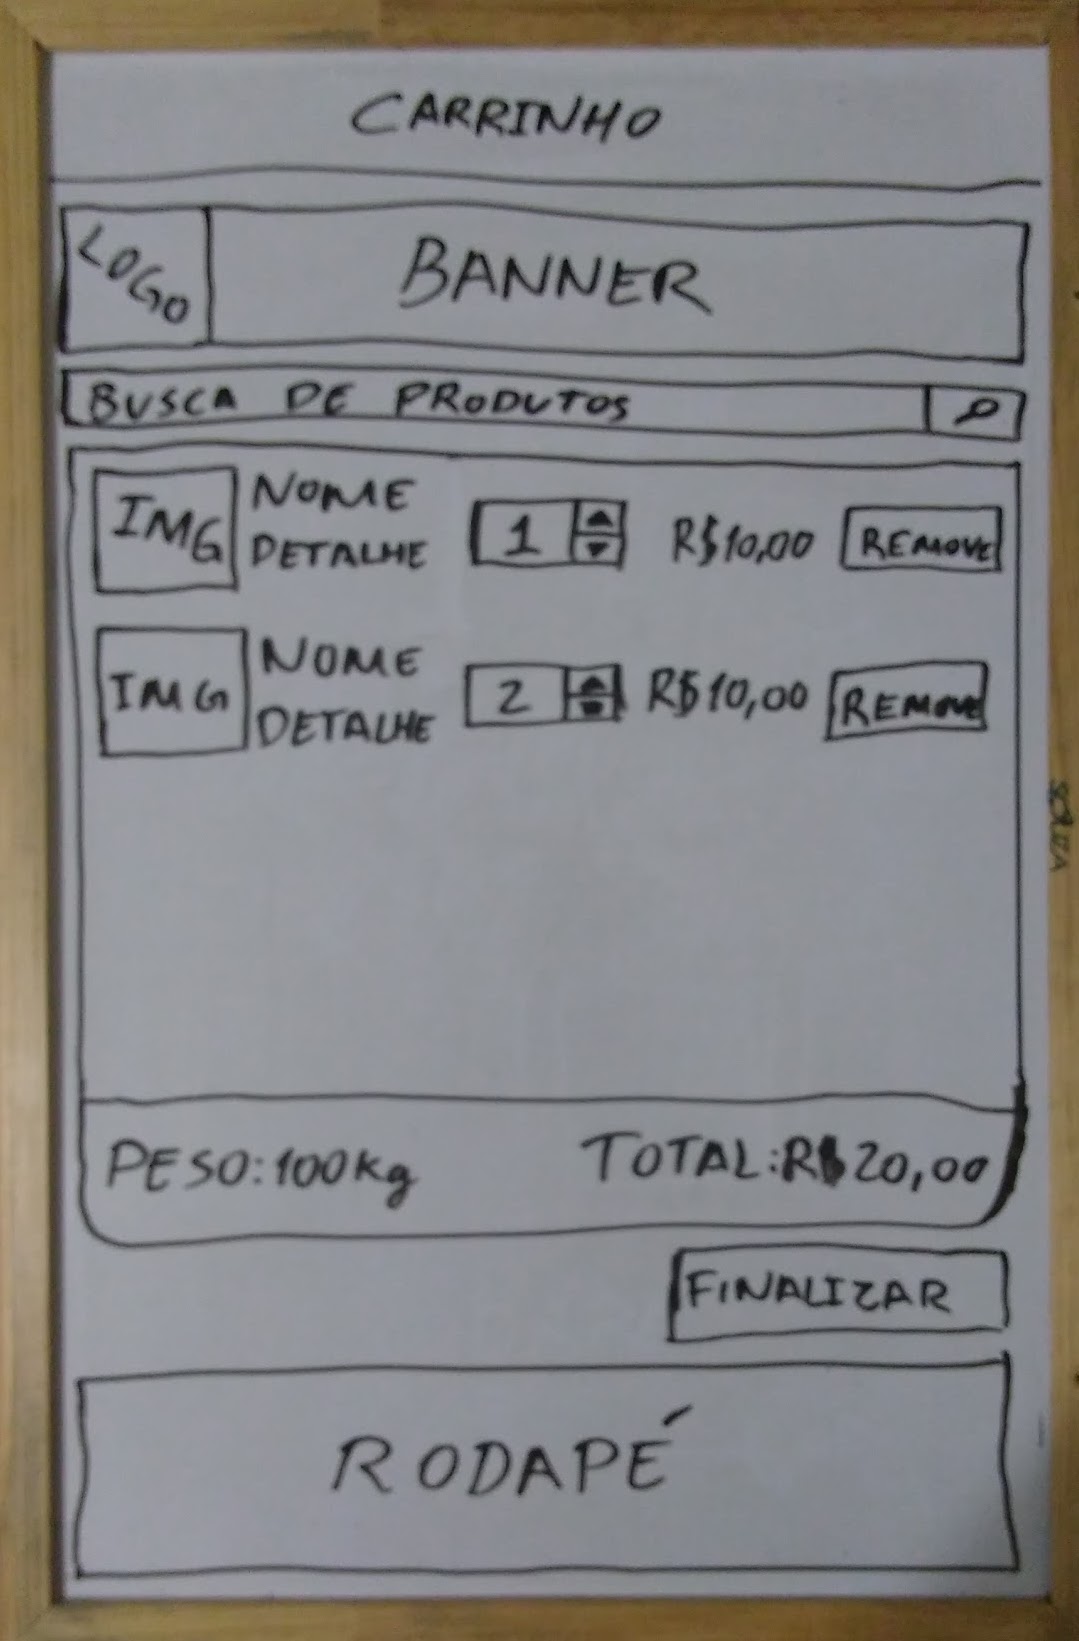 CARRINHO
LOGO
BANNER
BUSCA DE PRODUTOS
IMG
NOME
DETALHE
1
R$10,00
REMOVE
IMG
NOME
DETALHE
2
R$10,00
REMOVE
PESO:100Kg
TOTAL:R$20,00
FINALIZAR
RODAPÉ